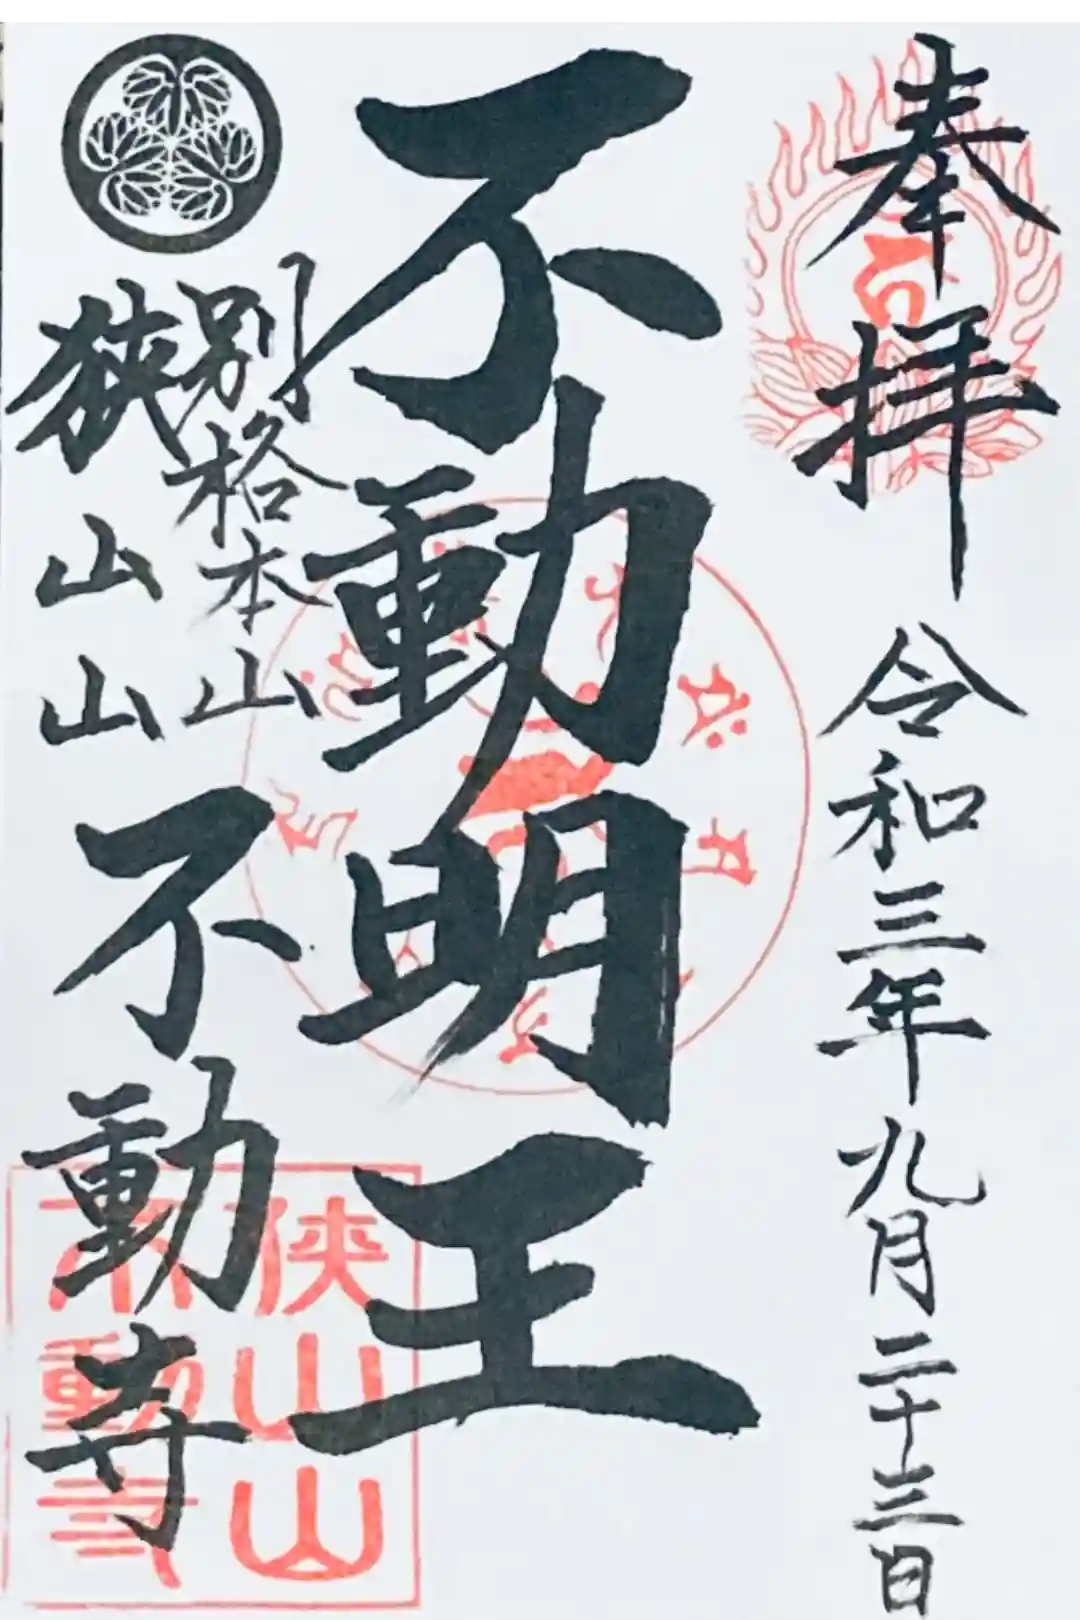 奉拝
令和三年九月二十三日
不動明王
別格本山
狭山山不動寺
狭山山
不動寺